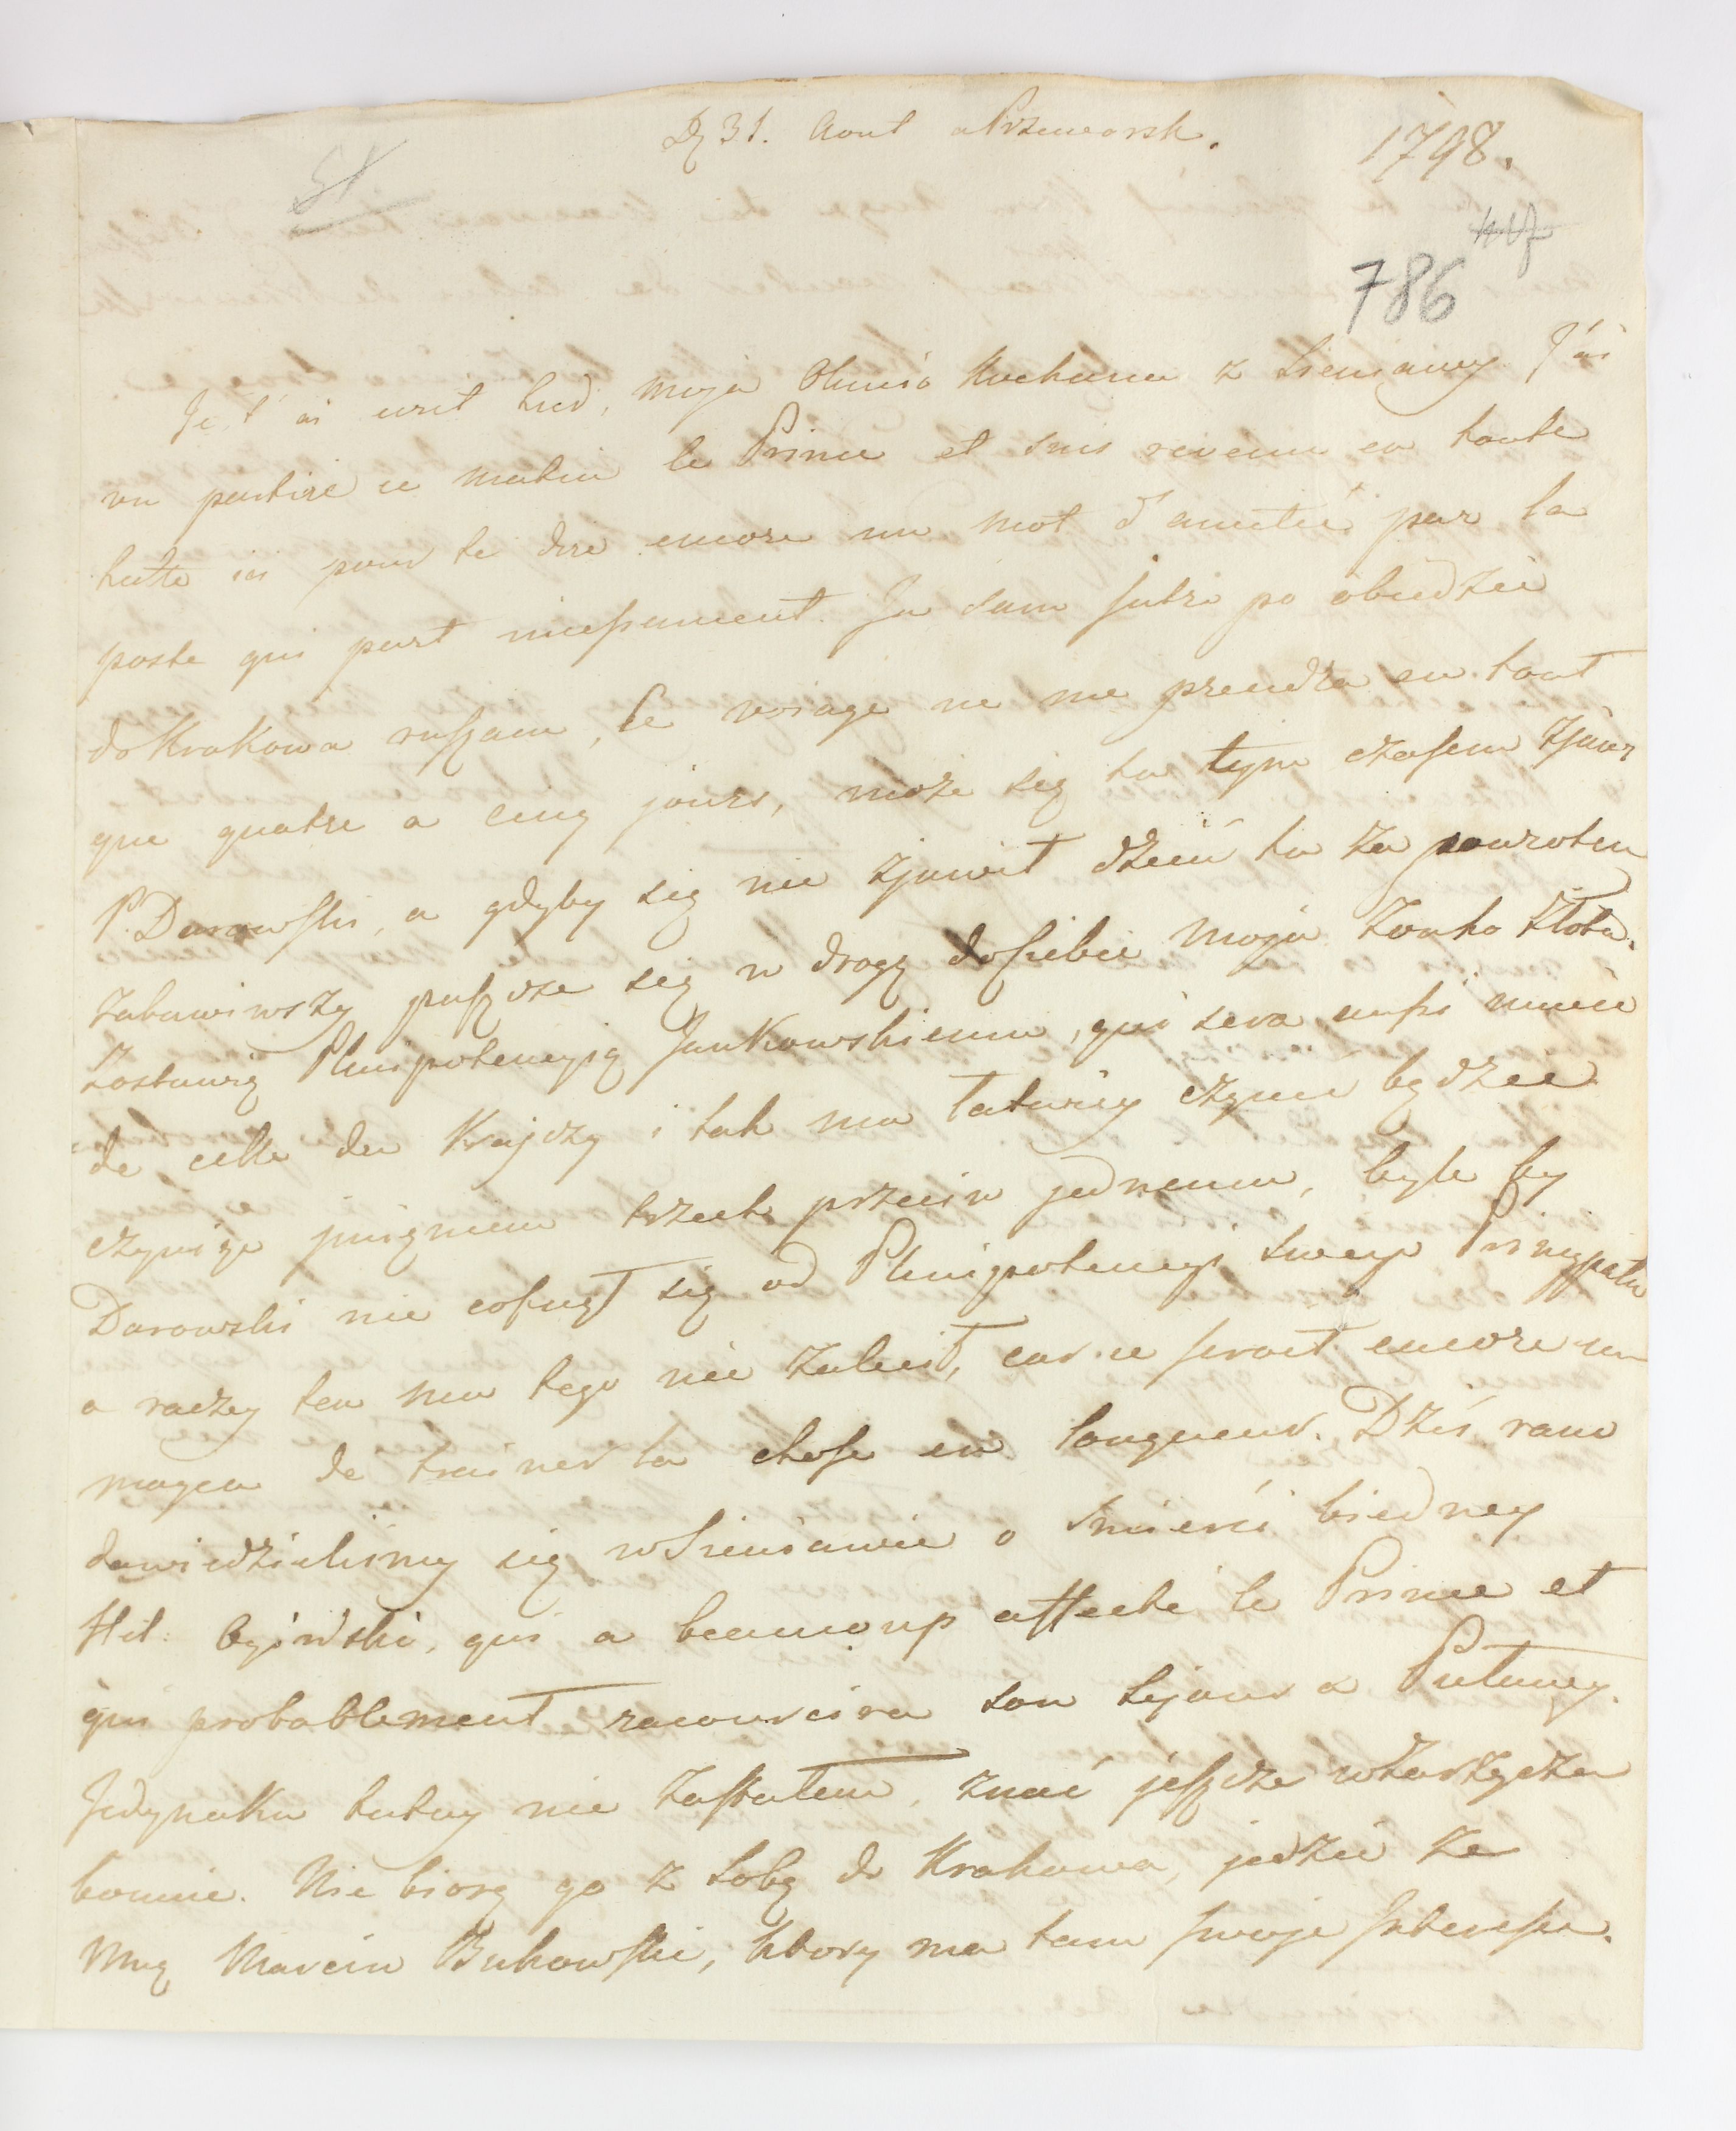 D 31. Aout a Przeworsk.
1798.
51
786
Je t'ai ecrit hier, moja Olunió Kochana z Sieniawy. J'ai
vu partire ce matin le Prince et suis revenu en toute
hatte ici pour te dire encore un mot d'amitié par la
poste qui part incessament. Ja sam jutro po obiedzie
do Krakowa ruszam, Ce voiage ne me prendra en tout
que quatre a cinq jours, może się tu tym czasem zjawi
P. Darowski, a gdyby się nie zjawił dzień tu za powrotem
zabawiwszy puszcze się w drogę do siebie moja Żonko Złota.
Zostawię Plenipotencyią Jankowskiemu, qui sera aussi munie
de celle de Krajczy i tak mu łatwiey czynić będzie
czyniąc imieniem trzech przeciw jednemu, byle by
Darowski nie cofnął się od Plenipotencyi swego Pryncypała
a raczey ten mu tego nie zalecił, car ce seroit encore un
moyen de trainer la chose en longueur. Dziś rano
dowiedzielismy się w Sieniawie o śmierci biedney
Het: Ogiński, qui a beaucoup affecté le Prince et
qui probablement racourcira son sejour a Pulawy.
Jedynaka tutay nie zastałem, znać jeszcze
bawie. Nie biorę go z sobą do Krakowa, jedzie ze
Mną Marcin Bukowski, ktory ma tam swoje Interessa.